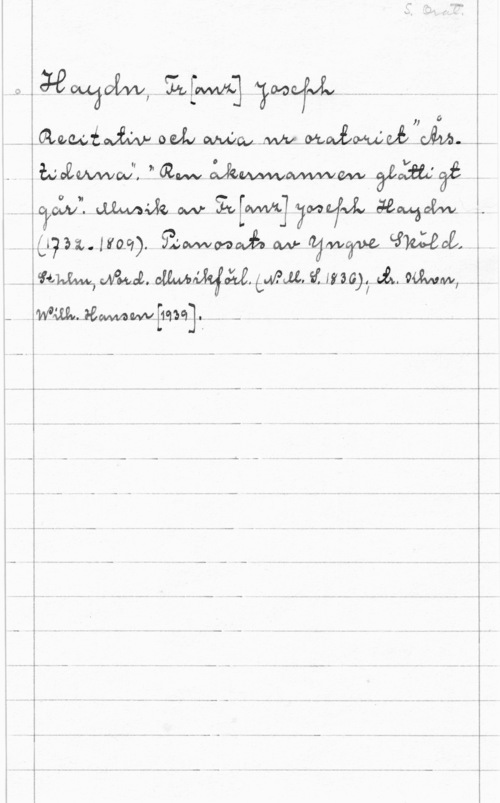 S. Orat.
Haydn, Fr[anz] Joseph
Recitativ och aria ur oratoriet "Års-
tiderna". "Ren åkermannen glättigt
går". Musik av Fr[anz] Joseph Haydn
(1732-1809). Pianosats av Yngve Sköld.
Sthlm, Nord. Musikförl. (N.M.S. 1836); Khvn,
Wilh. Hansen [1939].